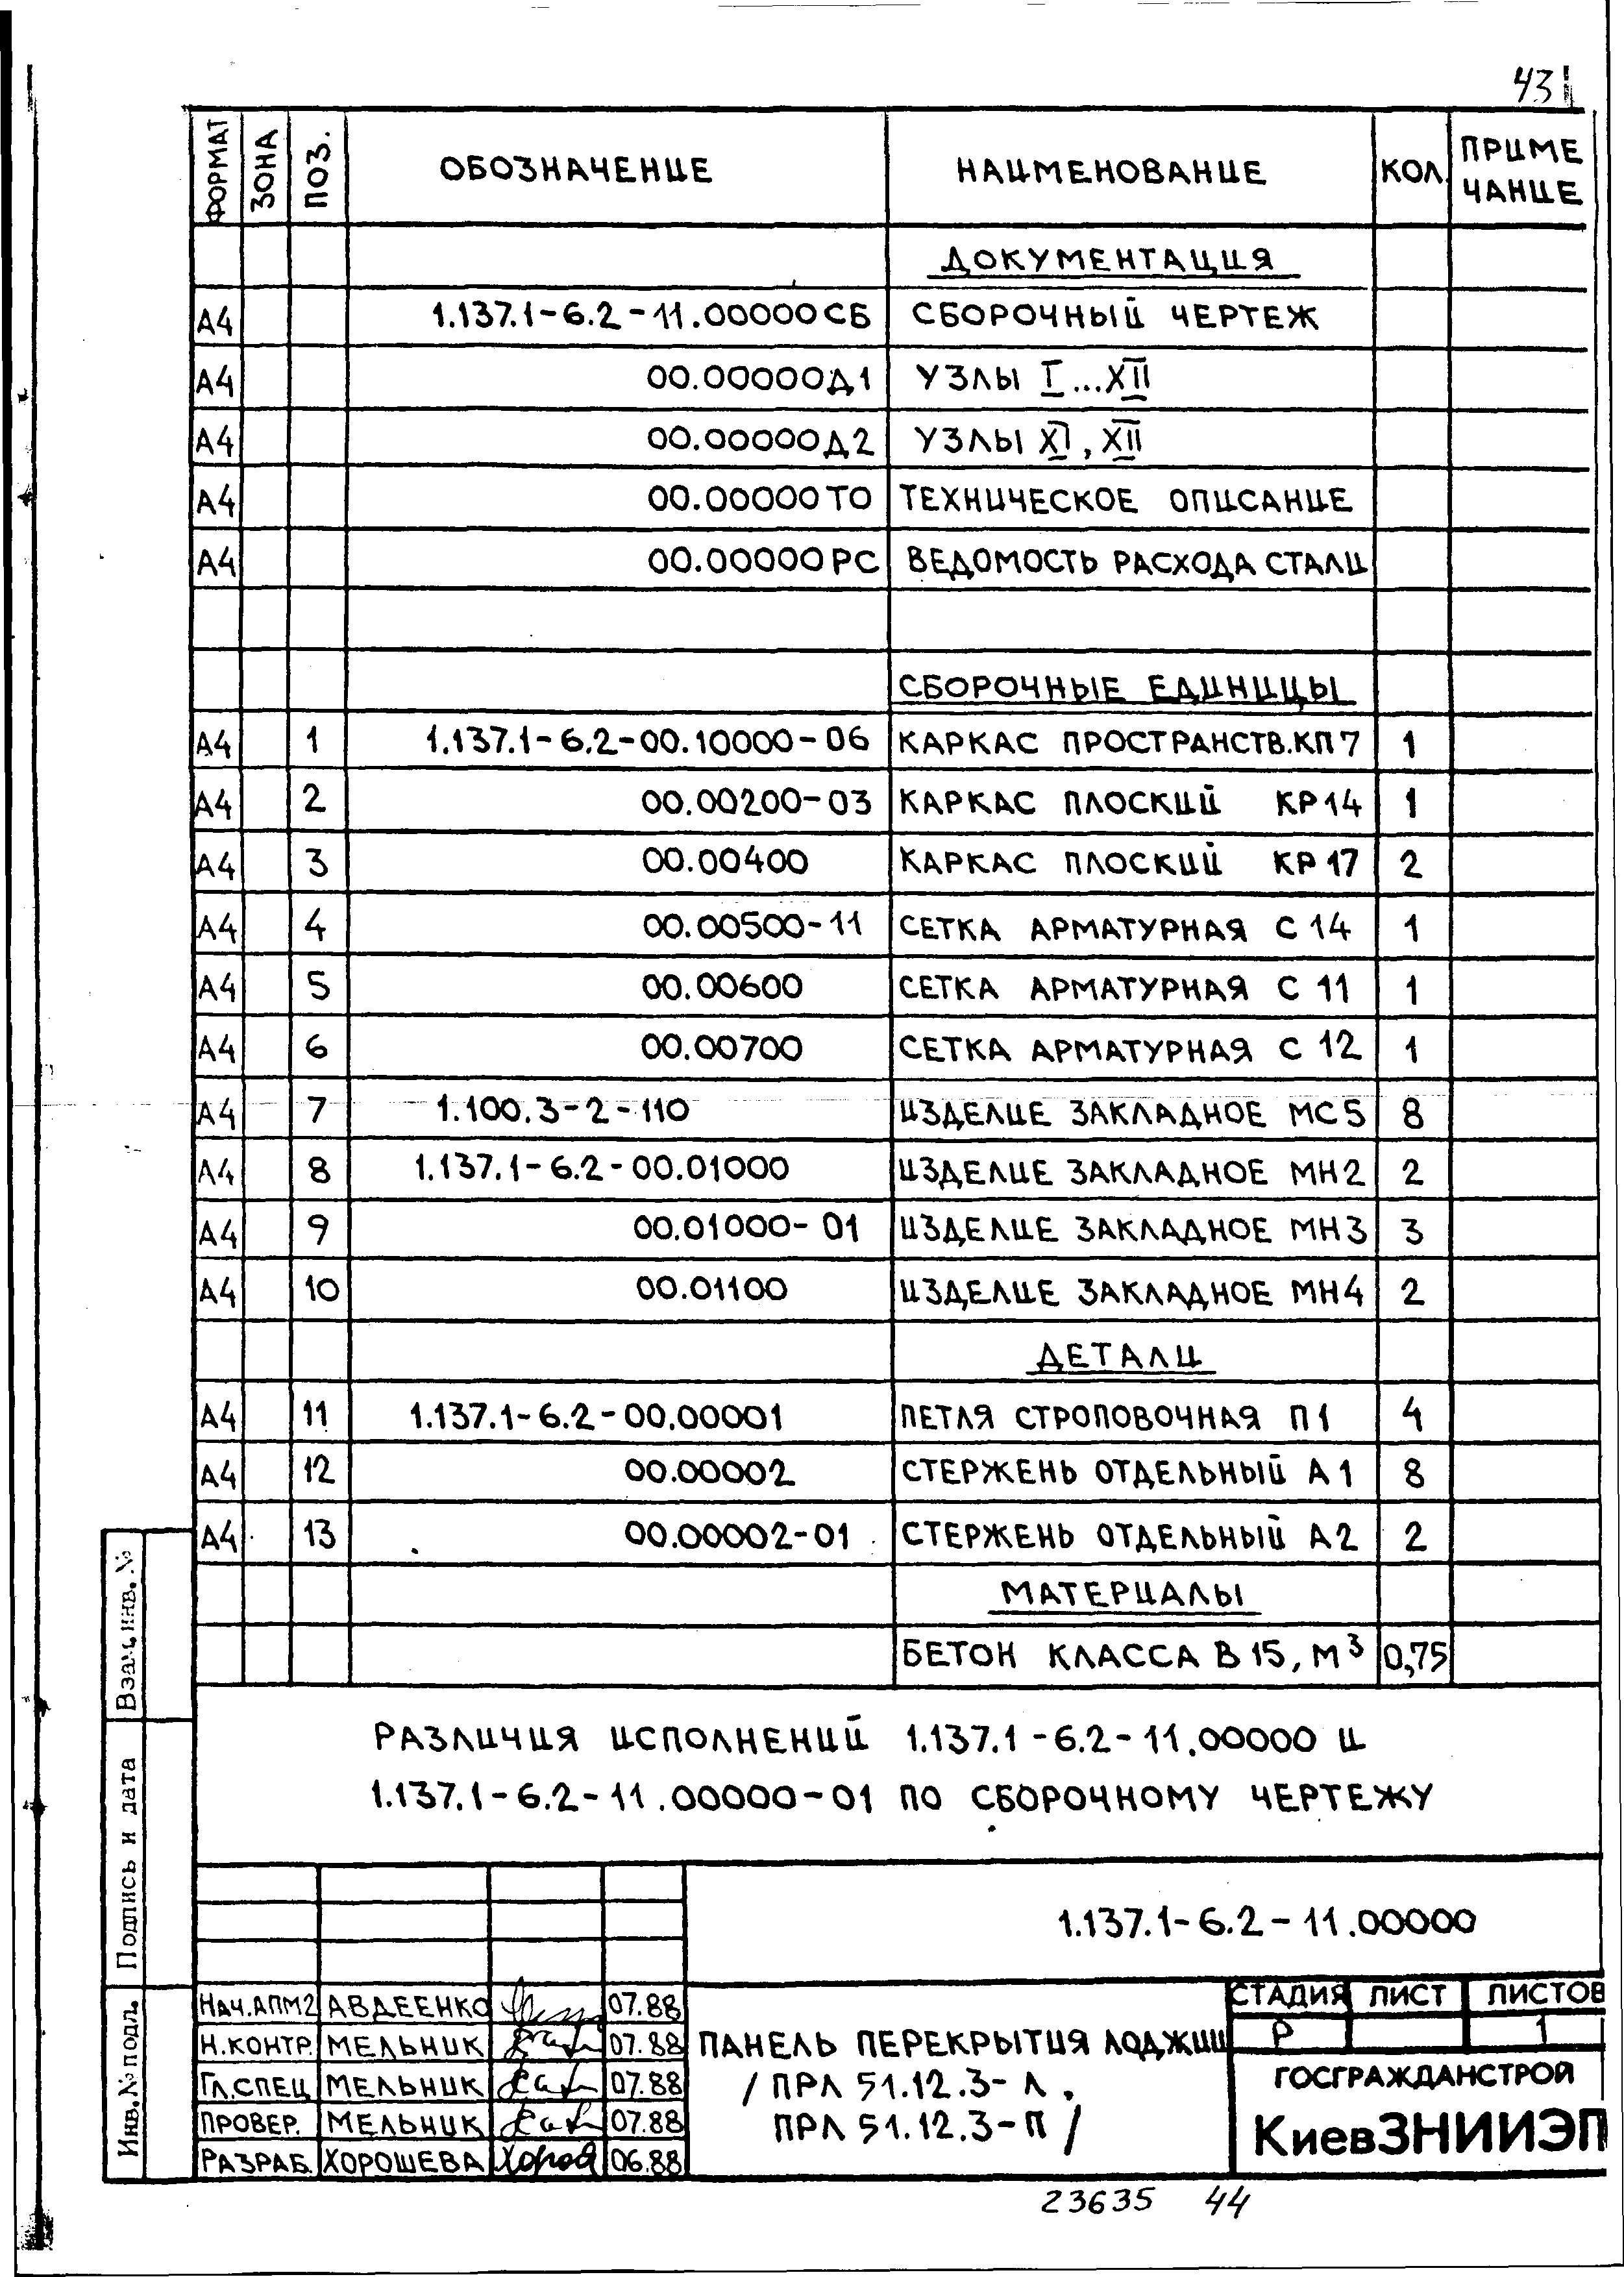 43
ФОРМАТ ЗОНА ПОЗ. ОБОЗНАЧЕНИЕ НАИМЕНОВАНИЕ КОЛ. ПРИМЕ
ЧАНИЕ
ДОКУМЕНТАЦИЯ
А4 1.137.1-6.2-11.00000СБ СБОРОЧНЫЙ ЧЕРТЕЖ
А4 00.00000Д1 УЗЛЫ I...XII
А4 00.00000Д2 УЗЛЫ XI, XII
А4 00.00000ТО ТЕХНИЧЕСКОЕ ОПИСАНИЕ
А4 00.00000РС ВЕДОМОСТЬ РАСХОДА СТАЛИ
СБОРОЧНЫЕ ЕДИНИЦЫ
А4 1 1.137.1-6.2-00.10000-06 КАРКАС ПРОСТРАНСТВ.КП7 1
А4 2 00.00200-03 КАРКАС ПЛОСКИЙ КР14 1
А4 3 00.00400 КАРКАС ПЛОСКИЙ КР17 2
А4 4 00.00500-11 СЕТКА АРМАТУРНАЯ С 14 1
А4 5 00.00600 СЕТКА АРМАТУРНАЯ С 11 1
А4 6 00.00700 СЕТКА АРМАТУРНАЯ С 12 1
А4 7 1.100.3-2-110 ИЗДЕЛИЕ ЗАКЛАДНОЕ МС5 8
А4 8 1.137.1-6.2-00.01000 ИЗДЕЛИЕ ЗАКЛАДНОЕ МН2 2
А4 9 00.01000-01 ИЗДЕЛИЕ ЗАКЛАДНОЕ МН3 3
А4 10 00.01100 ИЗДЕЛИЕ ЗАКЛАДНОЕ МН4 2
ДЕТАЛИ
А4 11 1.137.1-6.2-00.00001 ПЕТЛЯ СТРОПОВОЧНАЯ П1 4
А4 12 00.00002 СТЕРЖЕНЬ ОТДЕЛЬНЫЙ А1 8
А4 13 00.00002-01 СТЕРЖЕНЬ ОТДЕЛЬНЫЙ А2 2
МАТЕРИАЛЫ
БЕТОН КЛАССА В 15, М³ 0,75
РАЗЛИЧИЯ ИСПОЛНЕНИЙ 1.137.1-6.2-11.00000 И
1.137.1-6.2-11.00000-01 ПО СБОРОЧНОМУ ЧЕРТЕЖУ
Взам.инв.№
Подпись и дата
Инв.№подл.
1.137.1-6.2-11.00000
НАЧ.АПМ2 АВДЕЕНКО 07.88
Н.КОНТР. МЕЛЬНИК 07.88
ГЛ.СПЕЦ МЕЛЬНИК 07.88
ПРОВЕР. МЕЛЬНИК 07.88
РАЗРАБ. ХОРОШЕВА 06.88
ПАНЕЛЬ ПЕРЕКРЫТИЯ ЛОДЖИИ
/ ПРЛ 51.12.3-Л,
ПРЛ 51.12.3-П /
СТАДИЯ ЛИСТ ЛИСТОВ
Р 1
ГОСГРАЖДАНСТРОЙ
КиевЗНИИЭП
23635 44